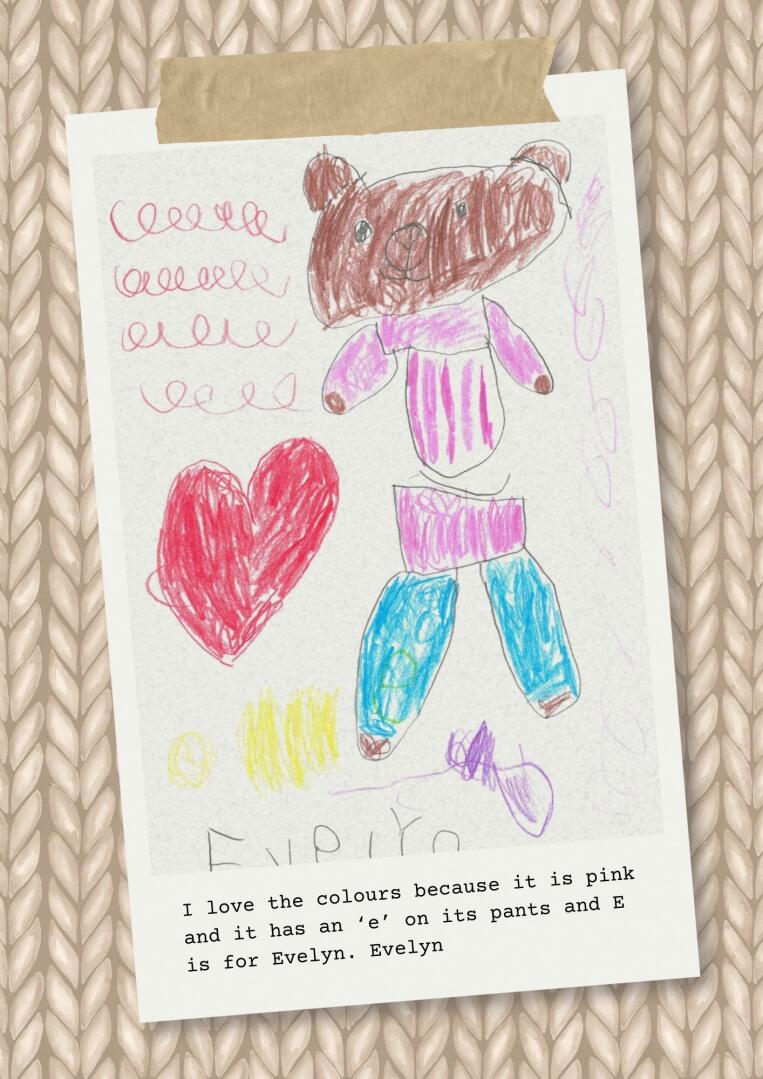 e
Evelyn
I love the colours because it is pink
and it has an ‘e’ on its pants and E
is for Evelyn. Evelyn